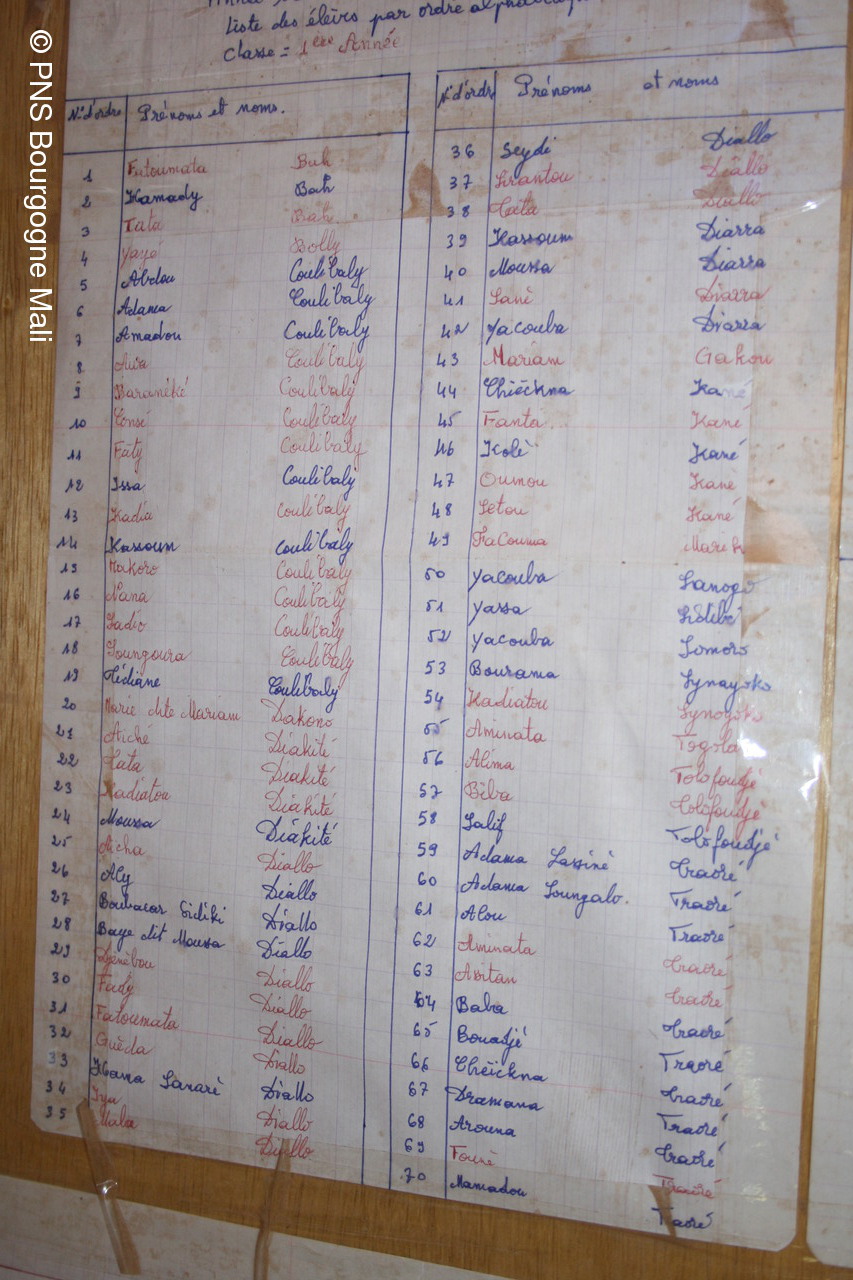 © PNS Bourgogne Mali
Liste des élèves par ordre
Classe = 1ère Année
N° d'ordre Prénoms et noms.
1 Fatoumata Bah
2 Hamady Bah
3 Tata Bah
4 Yayé Bolly
5 Abdou Coulibaly
6 Adama Coulibaly
7 Amadou Coulibaly
8 Awa Coulibaly
9 Baranéké Coulibaly
10 Coulibaly
11 Faty Coulibaly
12 Issa Coulibaly
13 Kadia Coulibaly
14 Kassoum Coulibaly
15 Makoro Coulibaly
16 Nana Coulibaly
17 Sadio Coulibaly
18 Soungoura Coulibaly
19 Tidiane Coulibaly
20 Marie dite Mariam Dakono
21 Aiché Diakité
22 Tata Diakité
23 Kadiatou Diakité
24 Moussa Diakité
25 Aicha Diallo
26 Aly Diallo
27 Boubacar Sidiki Diallo
28 Baye dit Moussa Diallo
29 Djenèbou Diallo
30 Fady Diallo
31 Fatoumata Diallo
32 Guèda Diallo
33 Diallo
34 Iya Diallo
35 Mala Diallo
N° d'ordre Prénoms et noms
36 Seydi Diallo
37 Sirantou Diallo
38 Tata Diallo
39 Kassoum Diarra
40 Moussa Diarra
41 Sané Diarra
42 Yacouba Diarra
43 Mariam Gakou
44 Chiéckna Kané
45 Fanta Kané
46 Kolè Kané
47 Oumou Kané
48 Setou Kané
49 FaCouma Mariko
50 Yacouba Sanogo
51 Yassa Sidibé
52 Yacouba Somoro
53 Bourama Synayoko
54 Kadiatou Synayoko
55 Aminata Togola
56 Alima Tolofoudjé
57 Biba Tolofoudjé
58 Salif Tolofoudjé
59 Adama Lassiné Traoré
60 Adama Soungalo. Traoré
61 Alou Traoré
62 Aminata Traoré
63 Assitan Traoré
64 Baba Traoré
65 Bouadjé Traoré
66 Chéickna Traoré
67 Dramana Traoré
68 Arouna Traoré
69 Founè Traoré
70 Mamadou Taoré